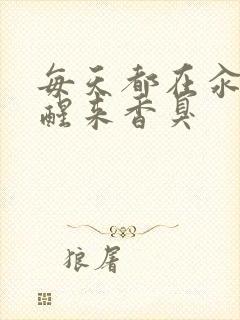 每天都在汆
醒来香臭
狼屠